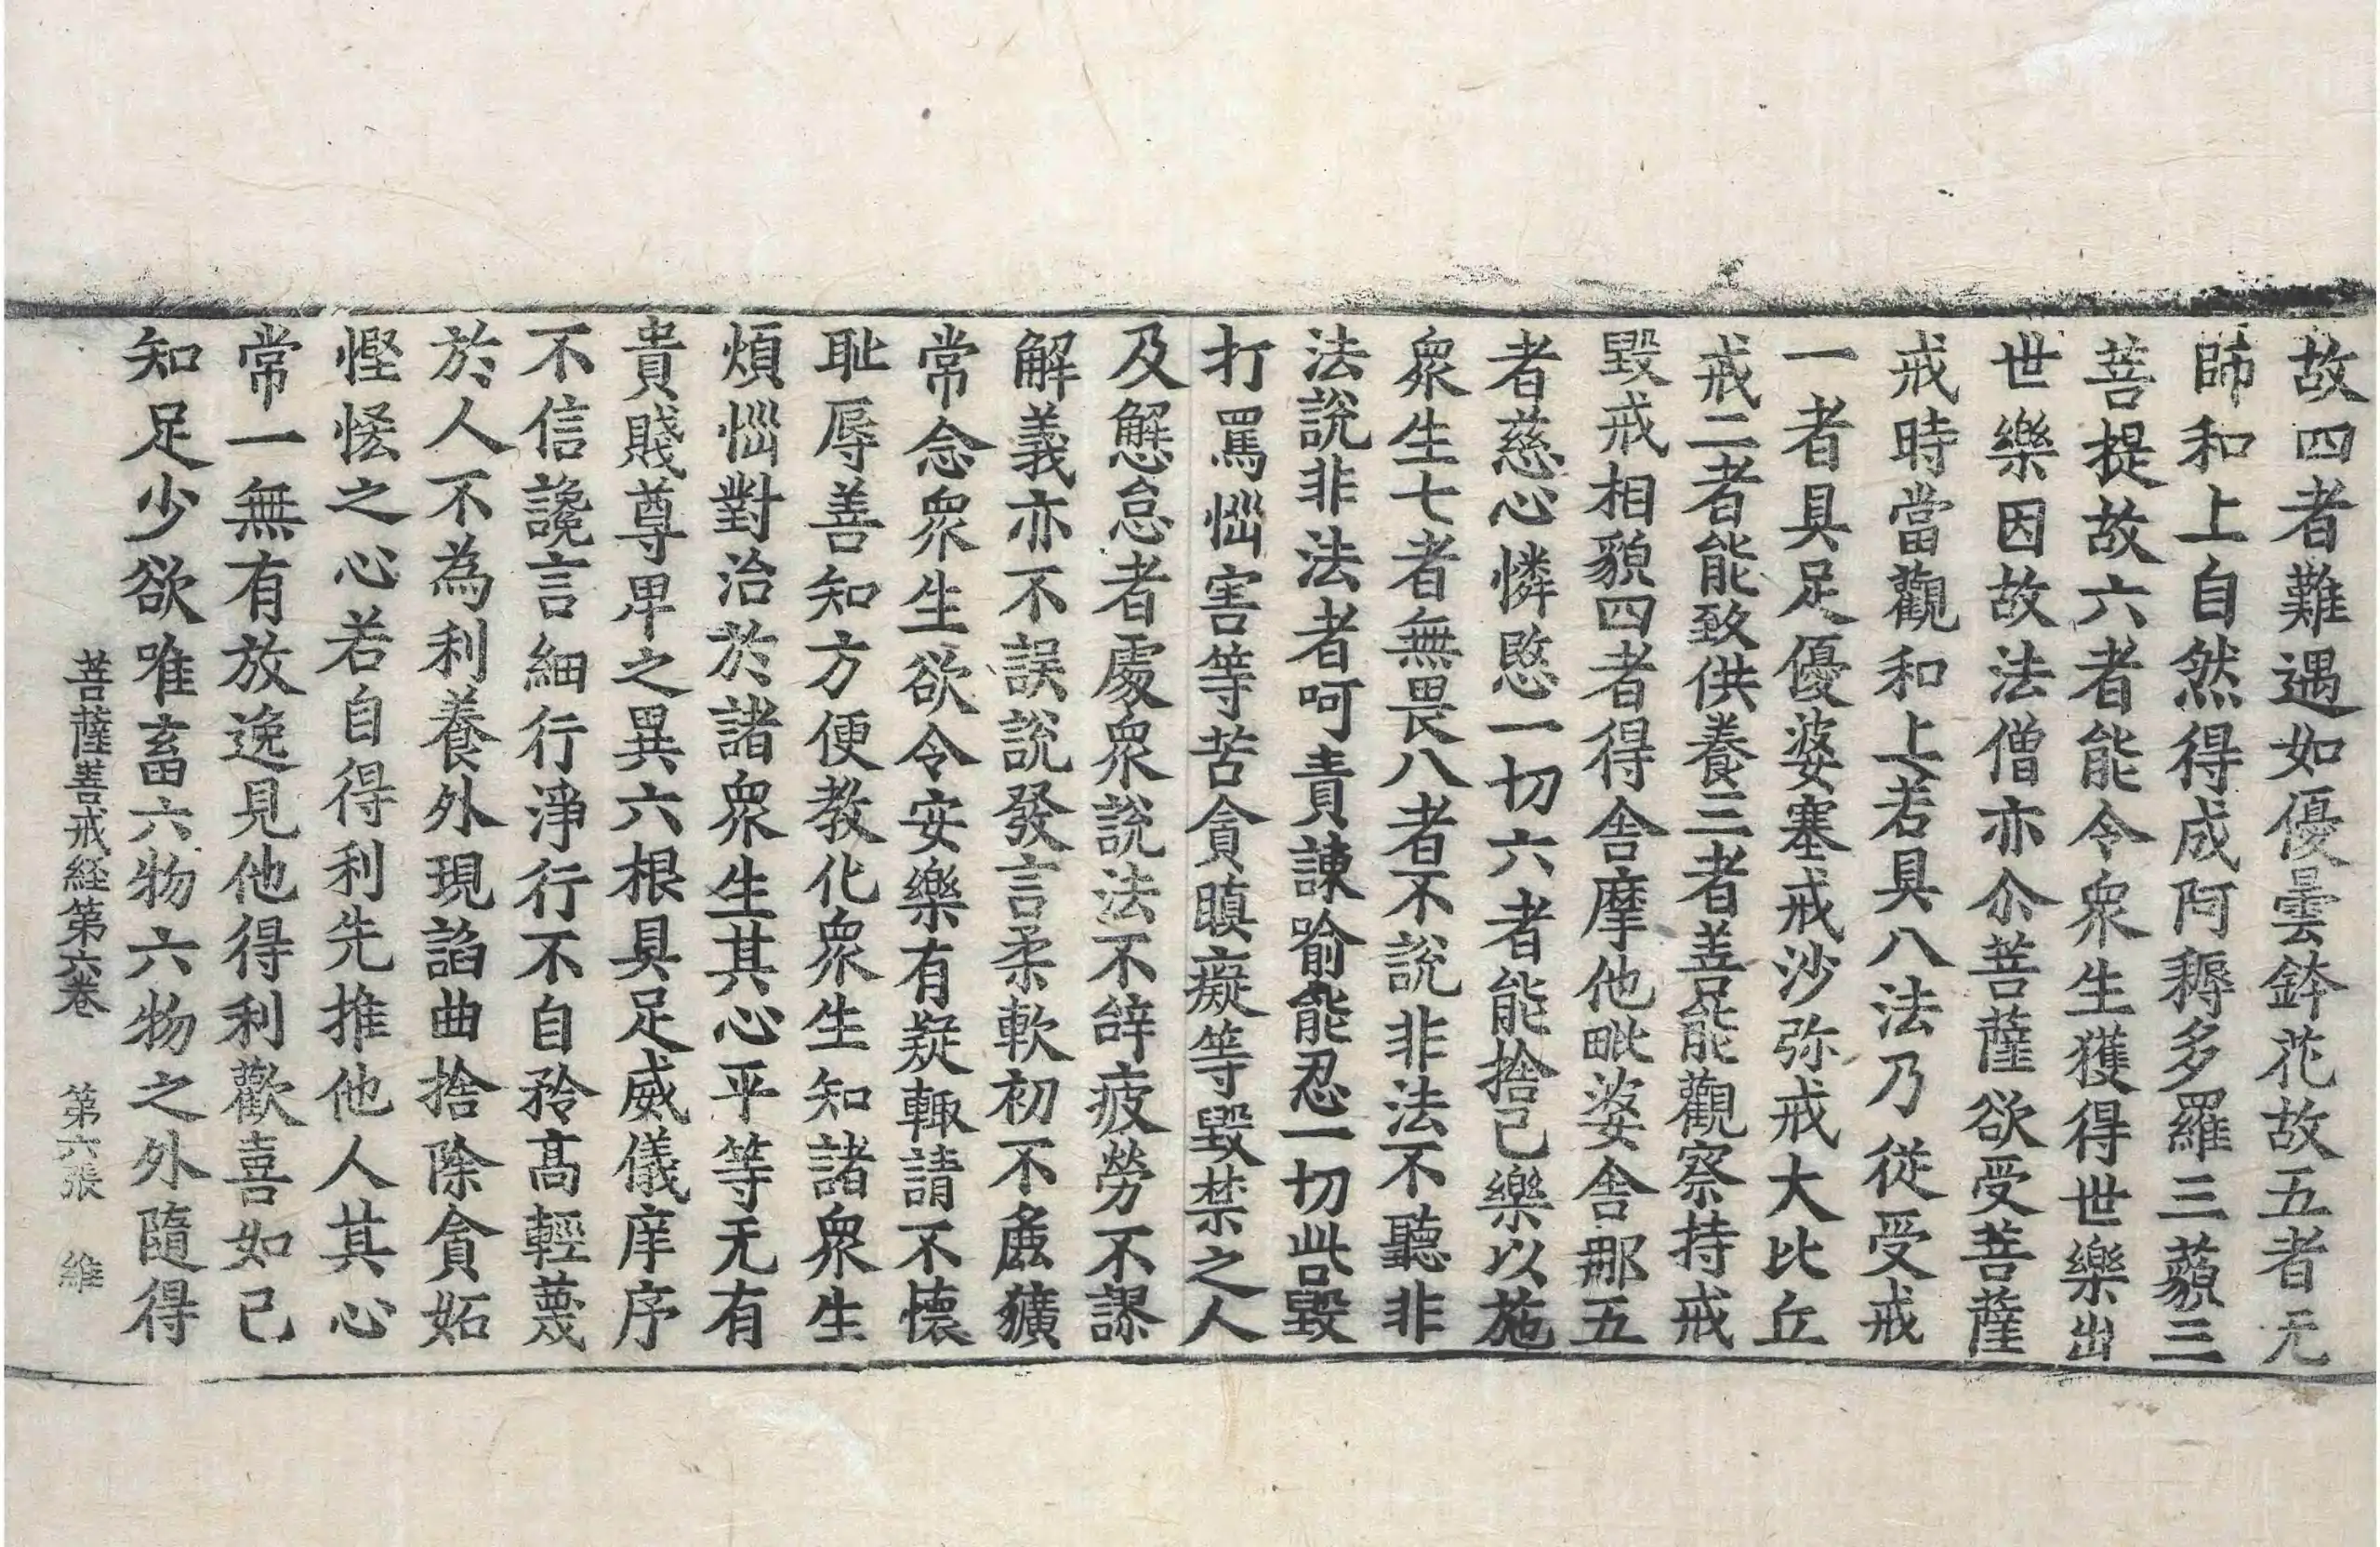 故四者難遇如優曇鉢花故五者无
師和上自然得成阿耨多羅三藐三
菩提故六者能令衆生獲得世樂出
世樂因故法僧亦尒菩薩欲受菩薩
戒時當觀和上若具八法乃従受戒
一者具足優婆塞戒沙弥戒大比丘
戒二者能致供養三者善能觀察持戒
毀戒相貌四者得舍摩他毗婆舍那五
者慈心憐愍一切六者能捨己樂以施
衆生七者無畏八者不說非法不聽非
法說非法者呵責諫喻能忍一切呰毀
打罵惱害等苦貪瞋癡等毀禁之人
及懈怠者處衆說法不辝疲勞不謬
解義亦不誤說發言柔軟初不麁獷
常念衆生欲令安樂有疑輙請不懷
耻辱善知方便教化衆生知諸衆生
煩惱對治於諸衆生其心平等无有
貴賤尊卑之異六根具足威儀庠序
不信讒言細行淨行不自矜高輕蔑
於人不為利養外現諂曲捨除貪妬
慳悋之心若自得利先推他人其心
常一無有放逸見他得利歡喜如己
知足少欲唯畜六物六物之外隨得
菩薩善戒経第六卷 第六張 維